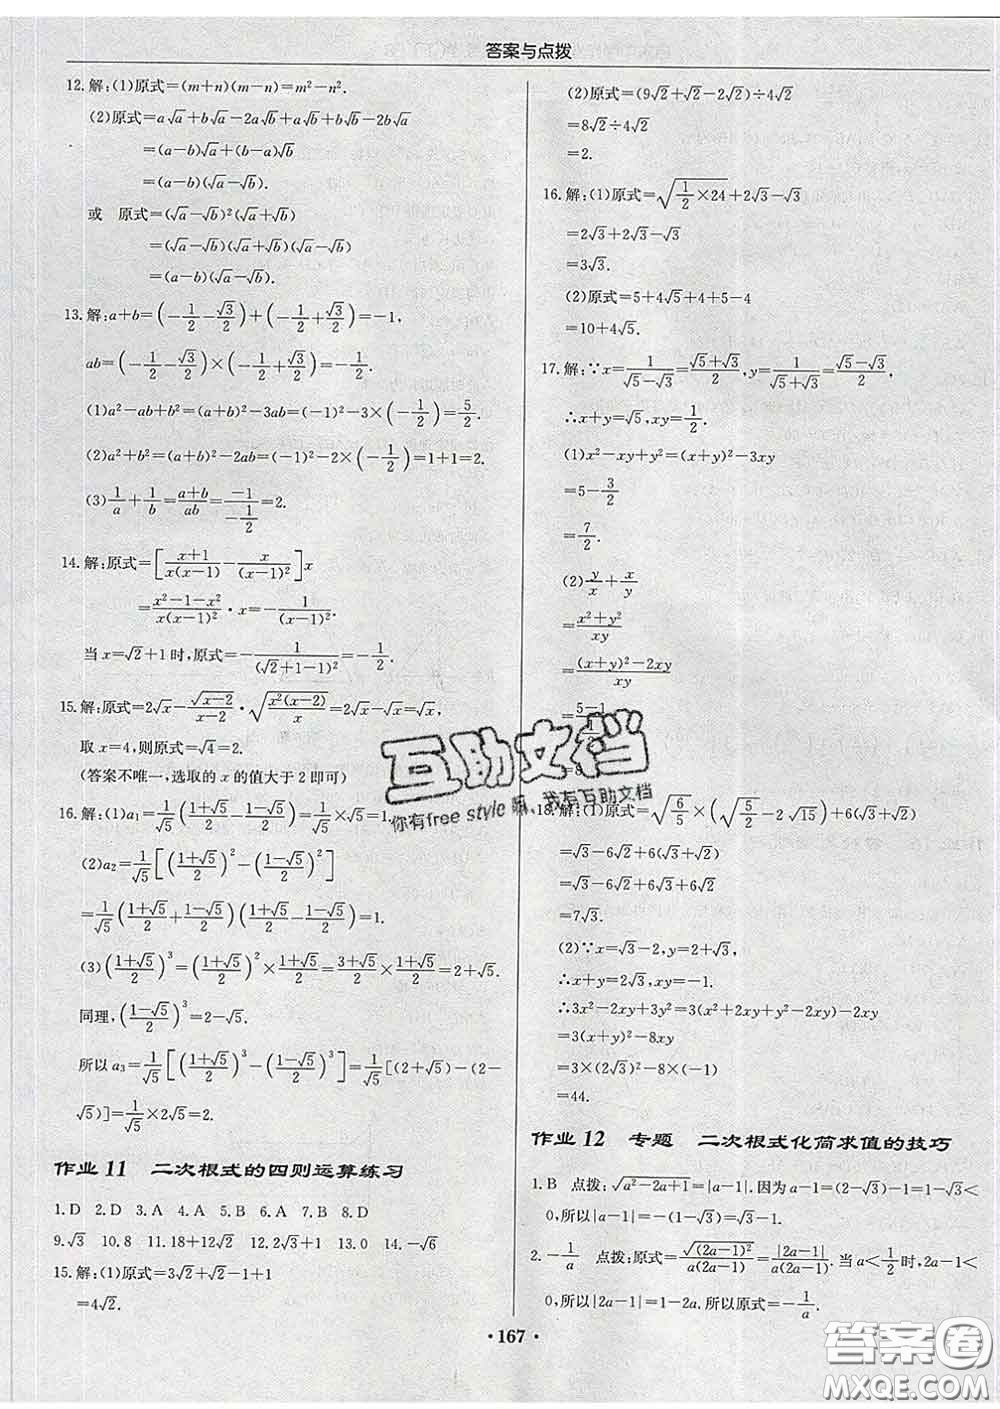 答案与点拨
12.解:(1)原式=(m+n)(m-n)=m²-n².
(2)原式=a√a+b√a-2a√b+a√b+b√b-2b√a
=(a-b)√a+(b-a)√b
=(a-b)(√a-√b).
或 原式=(√a-√b)²(√a+√b)
=(√a-√b)(√a+√b)(√a-√b)
=(a-b)(√a-√b).
13.解:a+b=(-1/2-√3/2)+(-1/2+√3/2)=-1,
ab=(-1/2-√3/2)×(-1/2+√3/2)=-1/2.
(1)a²-ab+b²=(a+b)²-3ab=(-1)²-3×(-1/2)=5/2.
(2)a²+b²=(a+b)²-2ab=(-1)²-2×(-1/2)=1+1=2.
(3)1/a+1/b=(a+b)/ab=-1/(-1/2)=2.
14.解:原式=[(x+1)/(x(x-1))-x/(x-1)²]x
=(x²-1-x²)/(x(x-1)²)·x=-1/(x-1)².
当x=√2+1时,原式=-1/(√2+1-1)²=-1/2.
15.解:原式=2√x-√(x-2)/(x-2)·√(x²(x-2)/x)=2√x-√x=√x,
取x=4,则原式=√4=2.
(答案不唯一,选取的x的值大于2即可)
16.解:(1)a₁=1/√5((1+√5)/2-(1-√5)/2)=1/√5×√5=1.
(2)a₂=1/√5[((1+√5)/2)²-((1-√5)/2)²]
=1/√5((1+√5)/2+(1-√5)/2)((1+√5)/2-(1-√5)/2)=1.
(3)((1+√5)/2)³=((1+√5)/2)²×(1+√5)/2=(3+√5)/2×(1+√5)/2=2+√5.
同理,((1-√5)/2)³=2-√5.
所以a₃=1/√5[((1+√5)/2)³-((1-√5)/2)³]=1/√5[(2+√5)-(2-
√5)]=1/√5×2√5=2.
作业11 二次根式的四则运算练习
1.D 2.D 3.A 4.A 5.A 6.B 7.B 8.D
9.√3 10.8 11.18+12√2 12.2√3+1 13.0 14.-√6
15.解:(1)原式=3√2+√2-1+1
=4√2.
(2)原式=(9√2+√2-2√2)÷4√2
=8√2÷4√2
=2.
16.解:(1)原式=√(1/2×24)+2√3-√3
=2√3+2√3-√3
=3√3.
(2)原式=5+4√5+4+5-4
=10+4√5.
17.解:∵x=1/(√5-√3)=(√5+√3)/2,y=1/(√5+√3)=(√5-√3)/2,
∴x+y=√5,xy=1/2.
(1)x²-xy+y²=(x+y)²-3xy
=5-3/2
=7/2.
(2)y/x+x/y
=(x²+y²)/xy
=((x+y)²-2xy)/xy
=(5-1)/(1/2)
互助文档
你有free style嘛,我有互助文档
18.解:(1)原式=√(6/5)×(√(5/2)-2√15)+6(√3+√2)
=√3-6√2+6(√3+√2)
=√3-6√2+6√3+6√2
=7√3.
(2)∵x=√3-2,y=2+√3,
∴x+y=2√3,xy=-1.
∴3x²-2xy+3y²=3(x²+2xy+y²-2xy)-2xy
=3(x+y)²-8xy
=3×(2√3)²-8×(-1)
=44.
作业12 专题 二次根式化简求值的技巧
1.B 点拨:√(a²-2a+1)=|a-1|.因为a-1=(2-√3)-1=1-√3<
0,所以|a-1|=-(1-√3)=√3-1.
2.-1/a 点拨:原式=√((2a-1)²)/(a(2a-1))=|2a-1|/(a(2a-1)).当a<1/2时,2a-1<
0,所以|2a-1|=1-2a.所以原式=-1/a.
·167·
答案圈
MXQE.COM